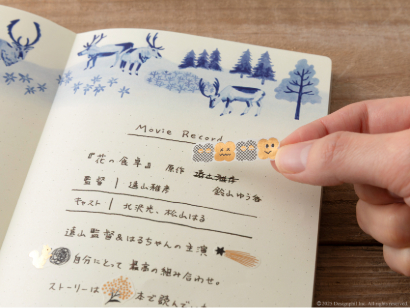 Movie Record
『花の食卓』 原作
鈴山ゆう各
監督 | 遠山雅彦
キャスト | 北沢光、松山はる
遠山監督&はるちゃんの主演
自分にとって 最高の組み合わせ。
ストーリーは 本で読んで